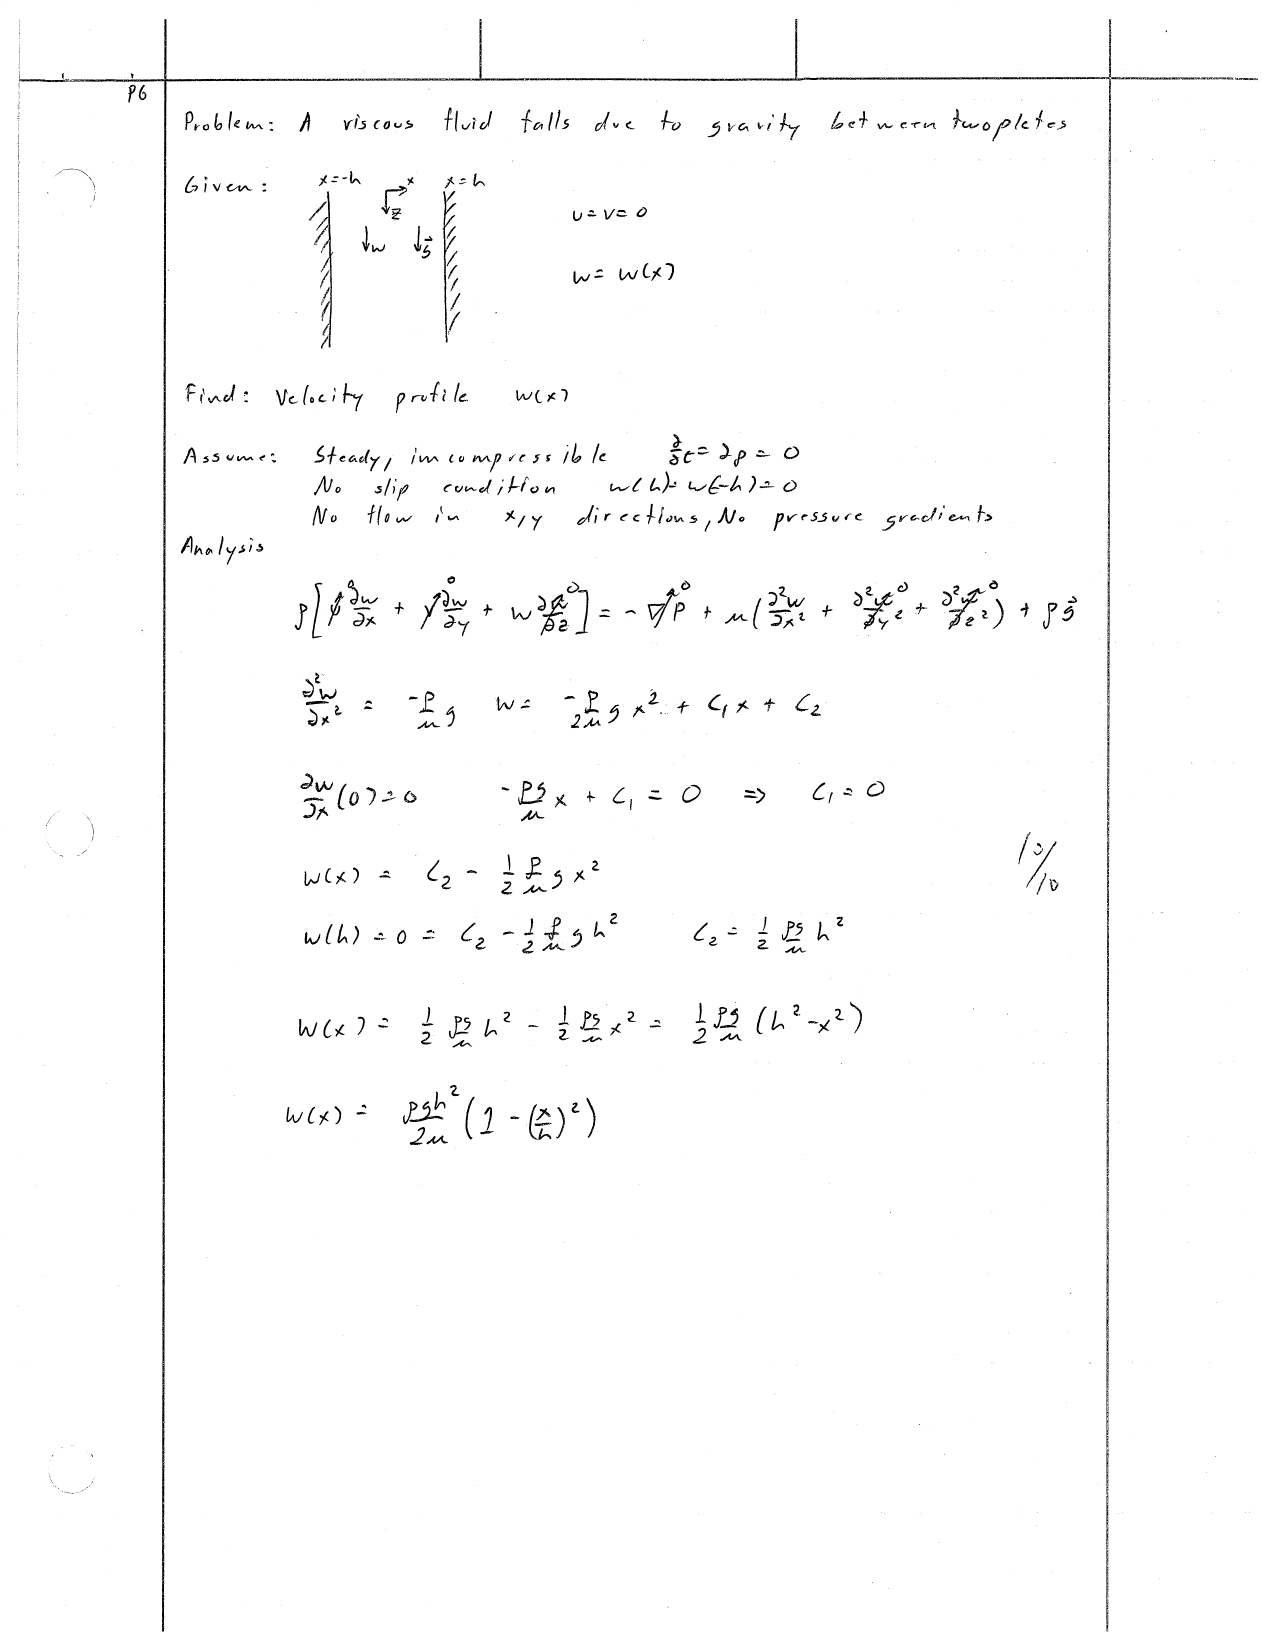 P6
Problem: A viscous fluid falls due to gravity between two pletes
Given: x=-h x x=h
z
w g⃗
u=v=0
w= w(x)
Find: Velocity profile w(x)
Assume: Steady, imcompressible ∂/∂t = ∂ρ = 0
No slip condition w(h)= w(-h)=0
No flow in x,y directions, No pressure gradients
Analysis
ρ[u ∂w/∂x + v ∂w/∂y + w ∂w/∂z] = -∇P + μ(∂²w/∂x² + ∂²w/∂y² + ∂²w/∂z²) + ρg⃗
0 0 0 0 0 0
∂²w/∂x² = -ρ/μ g w = -ρ/2μ g x² + C₁x + C₂
∂w/∂x (0)=0 -ρg/μ x + C₁ = 0 ⇒ C₁=0
10/10
w(x) = C₂ - 1/2 ρ/μ g x²
w(h) = 0 = C₂ - 1/2 ρ/μ g h² C₂ = 1/2 ρg/μ h²
w(x) = 1/2 ρg/μ h² - 1/2 ρg/μ x² = 1/2 ρg/μ (h²-x²)
w(x) = ρgh²/2μ (1 - (x/h)²)